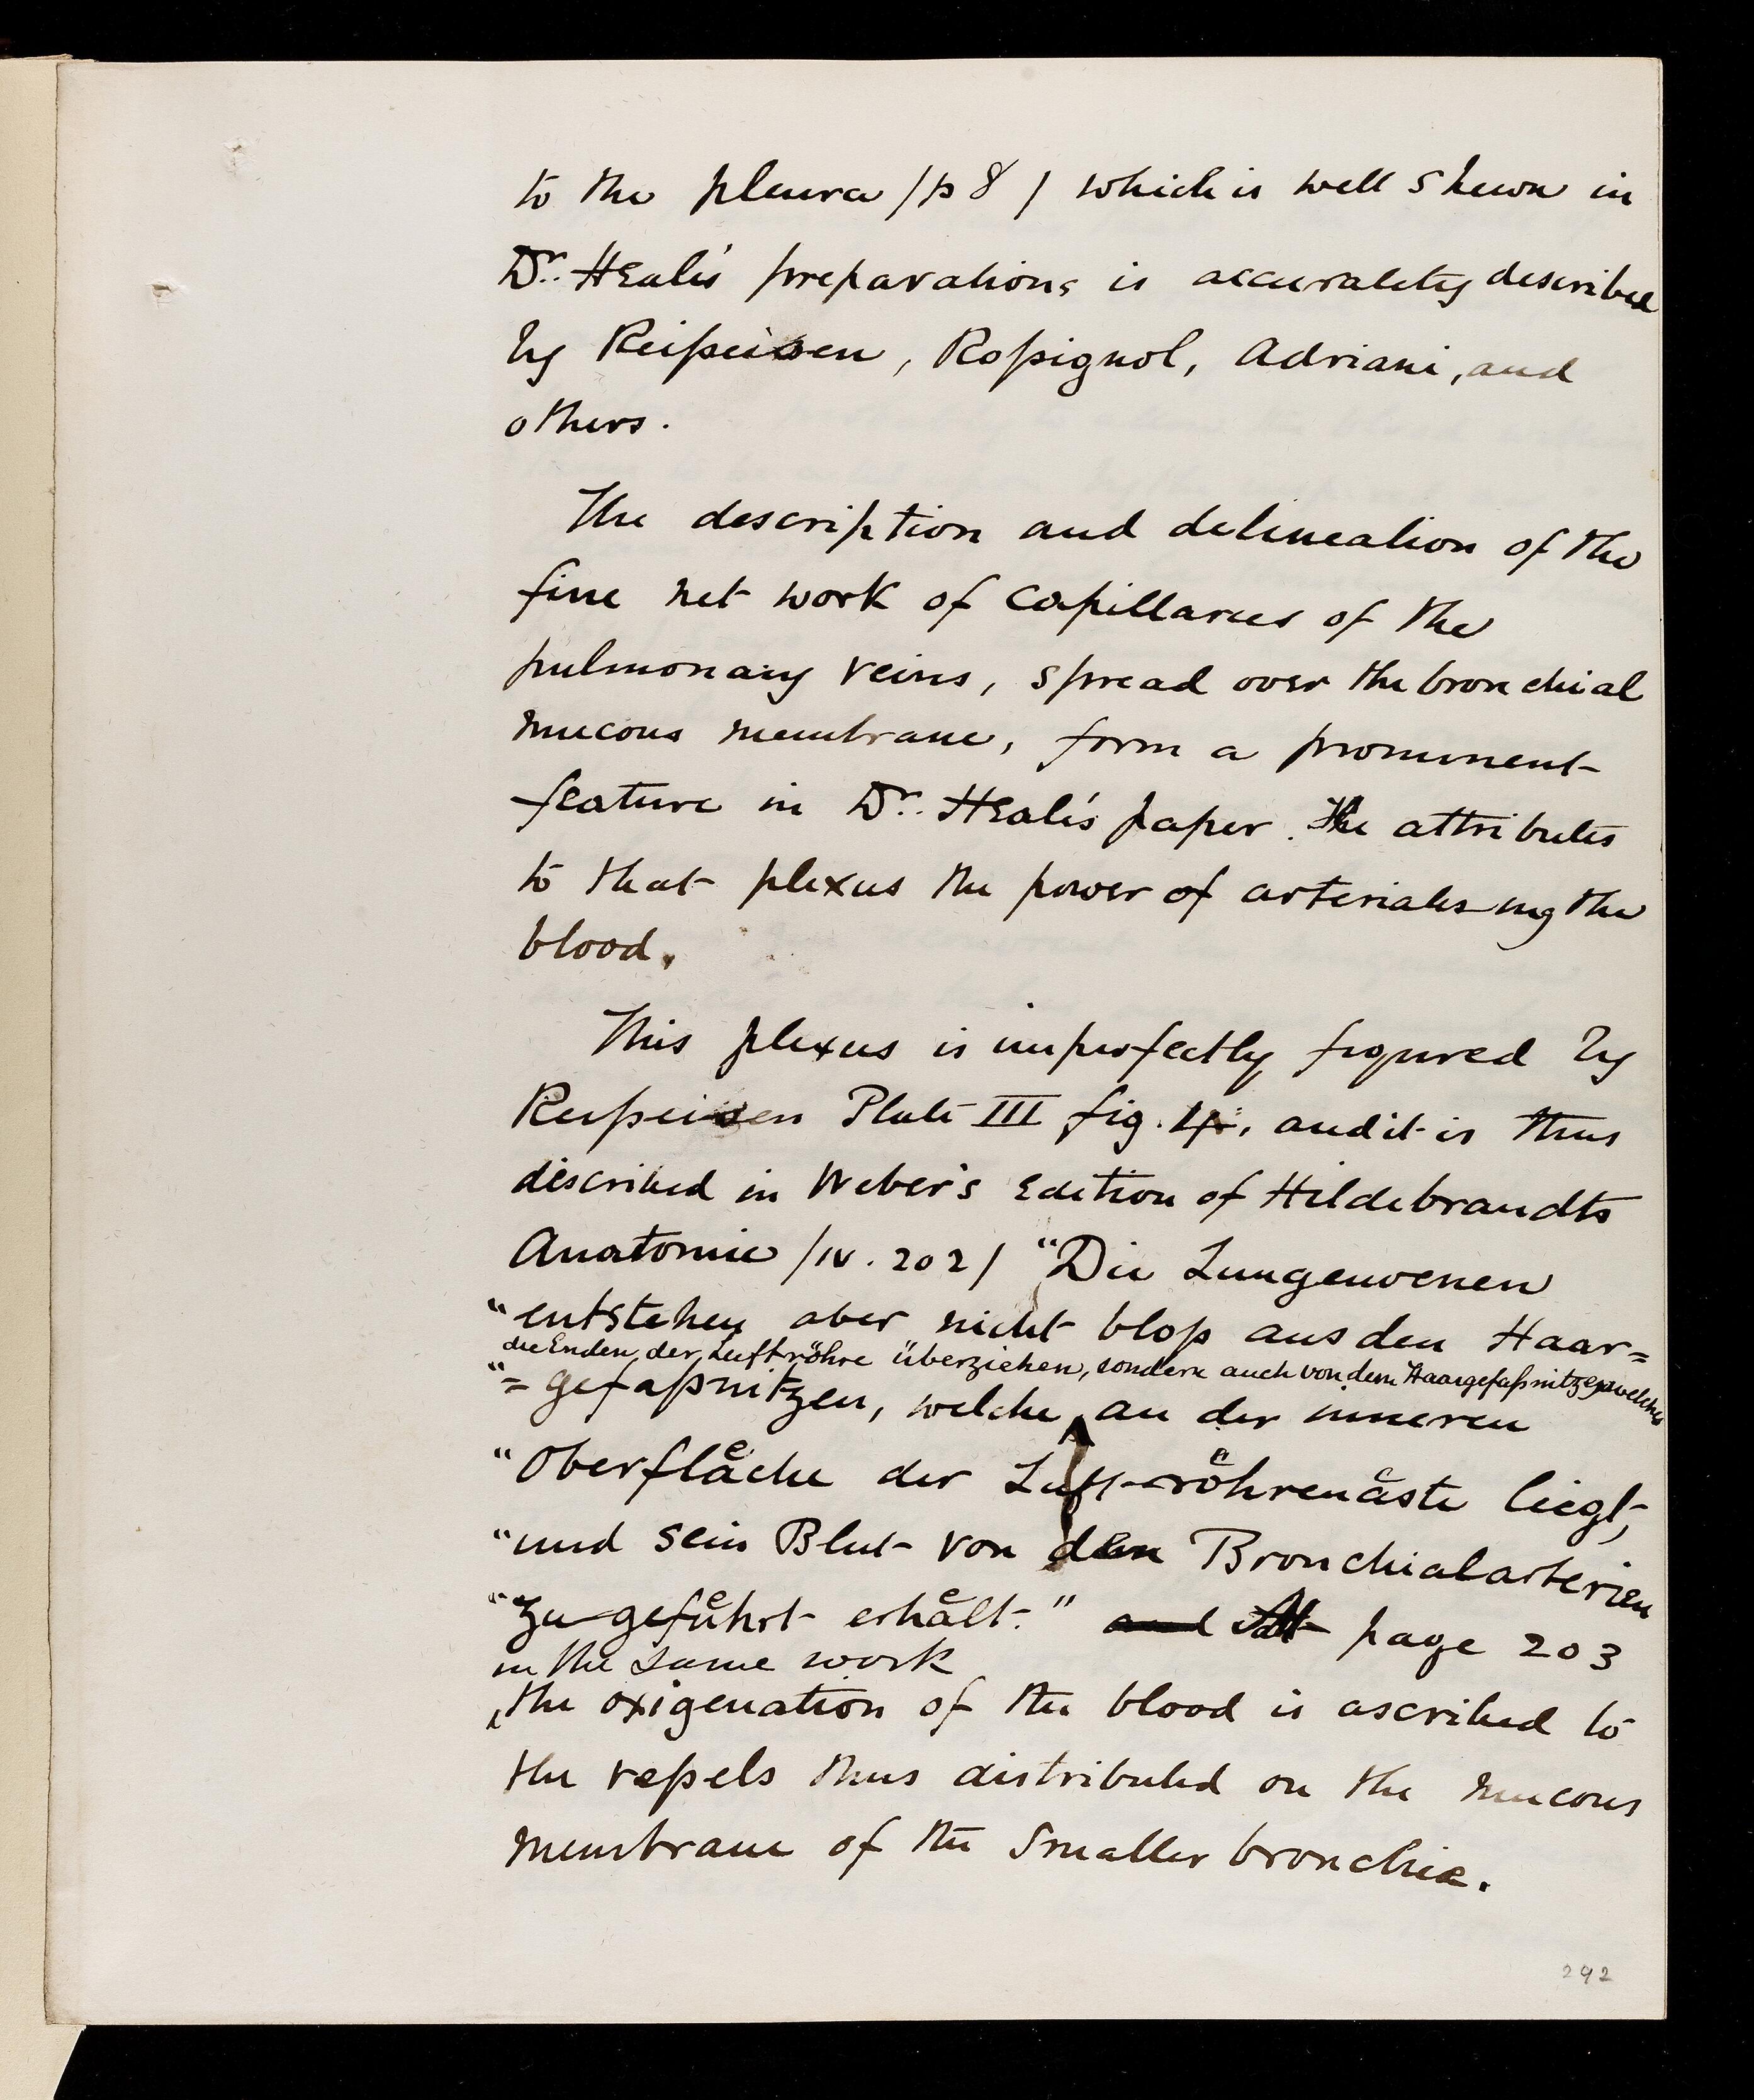 to the pleura /p 8/ which is well shewn in
Dr. Heale's preparations is accurately described
by Reißeisen, Roßignol, Adriani, and
others.
The description and delineation of the
fine net work of Capillaries of the
pulmonary veins, spread over the bronchial
mucous membrane, form a prominent
feature in Dr. Heale's paper. He attributes
to that plexus the power of arterialising the
blood.
This plexus is imperfectly figured by
Reißeisen Plate III fig. 4, and it is thus
described in Weber's Edition of Hildebrandts
Anatomie /IV. 202/ "Die Lungenvenen
"entstehen aber nicht bloß aus den Haar=
die Enden der Luftröhre überziehen, sondern auch von dem Haargefaßnitzen welches
"=gefaßnitzen, welche an der inneren
"Oberfläche der Luftröhrenäste liegt,
"und sein Blut von den Bronchialarterien
"zugeführt erhält." and page 203
in the same work
the oxigenation of the blood is ascribed to
the veßels thus distributed on the mucous
membrane of the smaller bronchiæ.
292